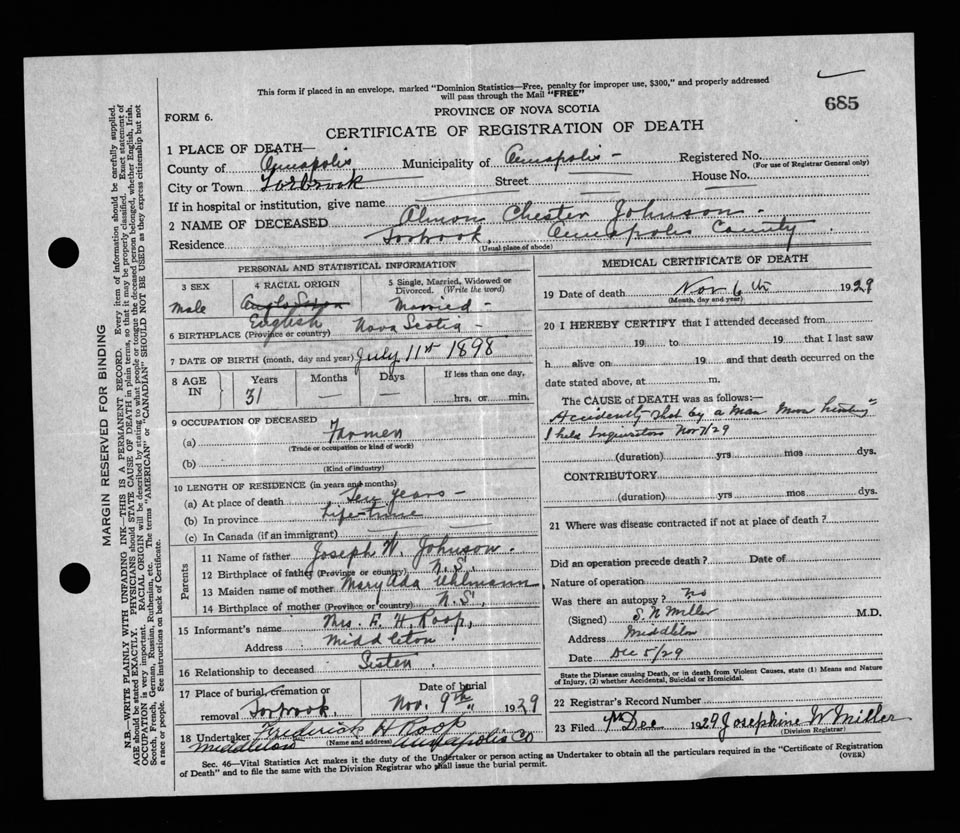 This form if placed in an envelope, marked "Dominion Statistics—Free, penalty for improper use, $300," and properly addressed
will pass through the Mail "FREE"
685
FORM 6.
PROVINCE OF NOVA SCOTIA
CERTIFICATE OF REGISTRATION OF DEATH
1 PLACE OF DEATH—
County of Annapolis Municipality of Annapolis – Registered No.
(For use of Registrar General only)
City or Town Torbrook Street House No.
If in hospital or institution, give name
2 NAME OF DECEASED Almon Chester Johnson –
Residence Torbrook, Annapolis County
(Usual place of abode)
PERSONAL AND STATISTICAL INFORMATION
3 SEX
Male
4 RACIAL ORIGIN
Anglo Saxon
English
5 Single, Married, Widowed or
Divorced. (Write the word)
Married –
6 BIRTHPLACE (Province or country) Nova Scotia –
7 DATE OF BIRTH (month, day and year) July 11st 1898
8 AGE
IN
Years
31
Months
—
Days
—
If less than one day,
hrs. or min.
9 OCCUPATION OF DECEASED
(a) Farmer
(Trade or occupation or kind of work)
(b)
(Kind of industry)
10 LENGTH OF RESIDENCE (in years and months)
(a) At place of death years –
(b) In province Life-time
(c) In Canada (if an immigrant)
Parents
11 Name of father Joseph W. Johnson.
12 Birthplace of father (Province or country) N.S.
13 Maiden name of mother Mary Ada Uhlmann
14 Birthplace of mother (Province or country) N.S.
15 Informant's name Mrs. F. H. Roop,
Address Middleton.
16 Relationship to deceased Sister.
17 Place of burial, cremation or
removal Torbrook
Date of burial
Nov. 9th " 1929
18 Undertaker Frederick H Roop
(Name and address)
Middleton Annapolis Co
MEDICAL CERTIFICATE OF DEATH
19 Date of death Nov 6th 1929
(Month, day and year)
20 I HEREBY CERTIFY that I attended deceased from
19 to 19 that I last saw
h alive on 19 and that death occurred on the
date stated above, at m.
The CAUSE of DEATH was as follows:
Accidently shot by a man Moose hunting
I held Nov 7/29
(duration) yrs mos dys.
CONTRIBUTORY
(duration) yrs mos dys.
21 Where was disease contracted if not at place of death?
Did an operation precede death? Date of
Nature of operation
Was there an autopsy? No
(Signed) S. N. Miller M.D.
Address Middleton
Date Dec 5/29
State the Disease causing Death, or in death from Violent Causes, state (1) Means and Nature
of Injury, (2) whether Accidental, Suicidal or Homicidal.
22 Registrar's Record Number
23 Filed Dec 1929 Josephine W Miller
(Division Registrar)
Sec. 46—Vital Statistics Act makes it the duty of the Undertaker or person acting as Undertaker to obtain all the particulars required in the "Certificate of Registration
of Death" and to file the same with the Division Registrar who shall issue the burial permit.
(OVER)
MARGIN RESERVED FOR BINDING
N.B.—WRITE PLAINLY WITH UNFADING INK—THIS IS A PERMANENT RECORD. Every item of information should be carefully supplied.
AGE should be stated EXACTLY. PHYSICIANS should STATE CAUSE OF DEATH in plain terms, so that it may be properly classified. Exact statement of
OCCUPATION is very important. RACIAL ORIGIN will be described by stating to what people or tongue the deceased person belonged, whether English, Irish,
Scotch, French, German, Russian, Ruthenian, etc. The terms "AMERICAN" or "CANADIAN" SHOULD NOT BE USED as they express citizenship but not
a race or people. See instructions on back of Certificate.